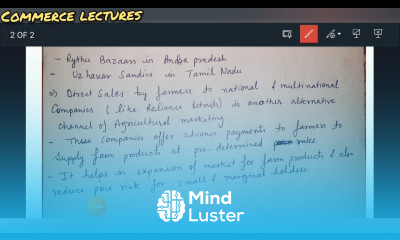 COMMERCE LECTURES
2 OF 2
- Rythu Bazaars in Andhra pradesh
- Uzhavar Sandies in Tamil Nadu
Direct Sales by farmers to national & multinational
Companies (like Reliance Retails) is another alternative
Channel of Agricultural marketing.
- These Companies offer advance payments to farmers to
Supply farm products at pre-determined rates.
- It helps in expansion of market for farm products & also
reduce price risk for small & marginal holders.
Mind
Luster